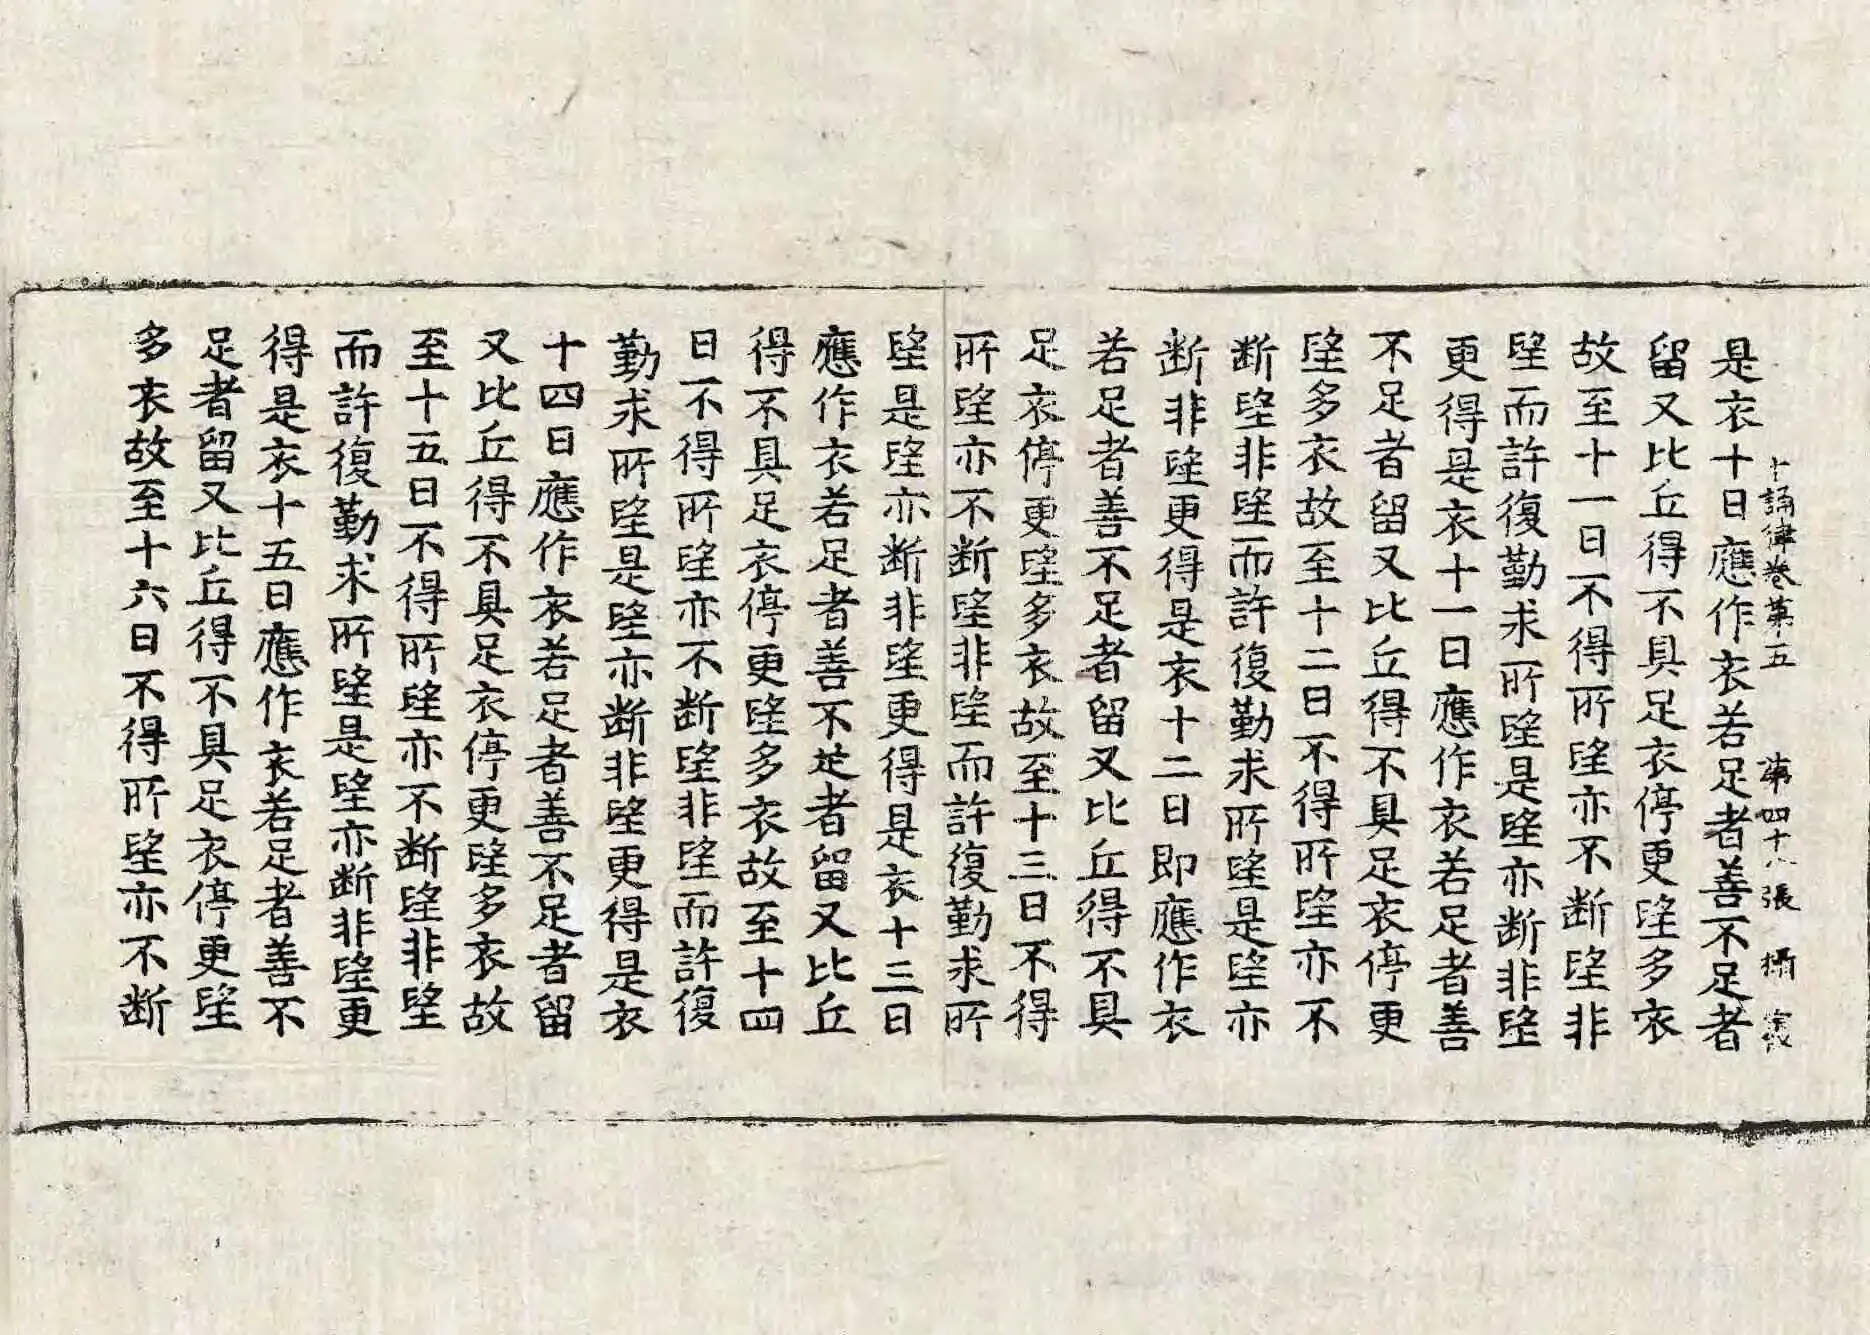 十誦律卷第五 第四十八張 攝
是衣十日應作衣若足者善不足者
留又比丘得不具足衣停更望多衣
故至十一日不得所望亦不断望非
望而許復勤求所望是望亦断非望
更得是衣十一日應作衣若足者善
不足者留又比丘得不具足衣停更
望多衣故至十二日不得所望亦不
断望非望而許復勤求所望是望亦
断非望更得是衣十二日即應作衣
若足者善不足者留又比丘得不具
足衣停更望多衣故至十三日不得
所望亦不断望非望而許復勤求所
望是望亦断非望更得是衣十三日
應作衣若足者善不足者留又比丘
得不具足衣停更望多衣故至十四
日不得所望亦不断望非望而許復
勤求所望是望亦断非望更得是衣
十四日應作衣若足者善不足者留
又比丘得不具足衣停更望多衣故
至十五日不得所望亦不断望非望
而許復勤求所望是望亦断非望更
得是衣十五日應作衣若足者善不
足者留又比丘得不具足衣停更望
多衣故至十六日不得所望亦不断